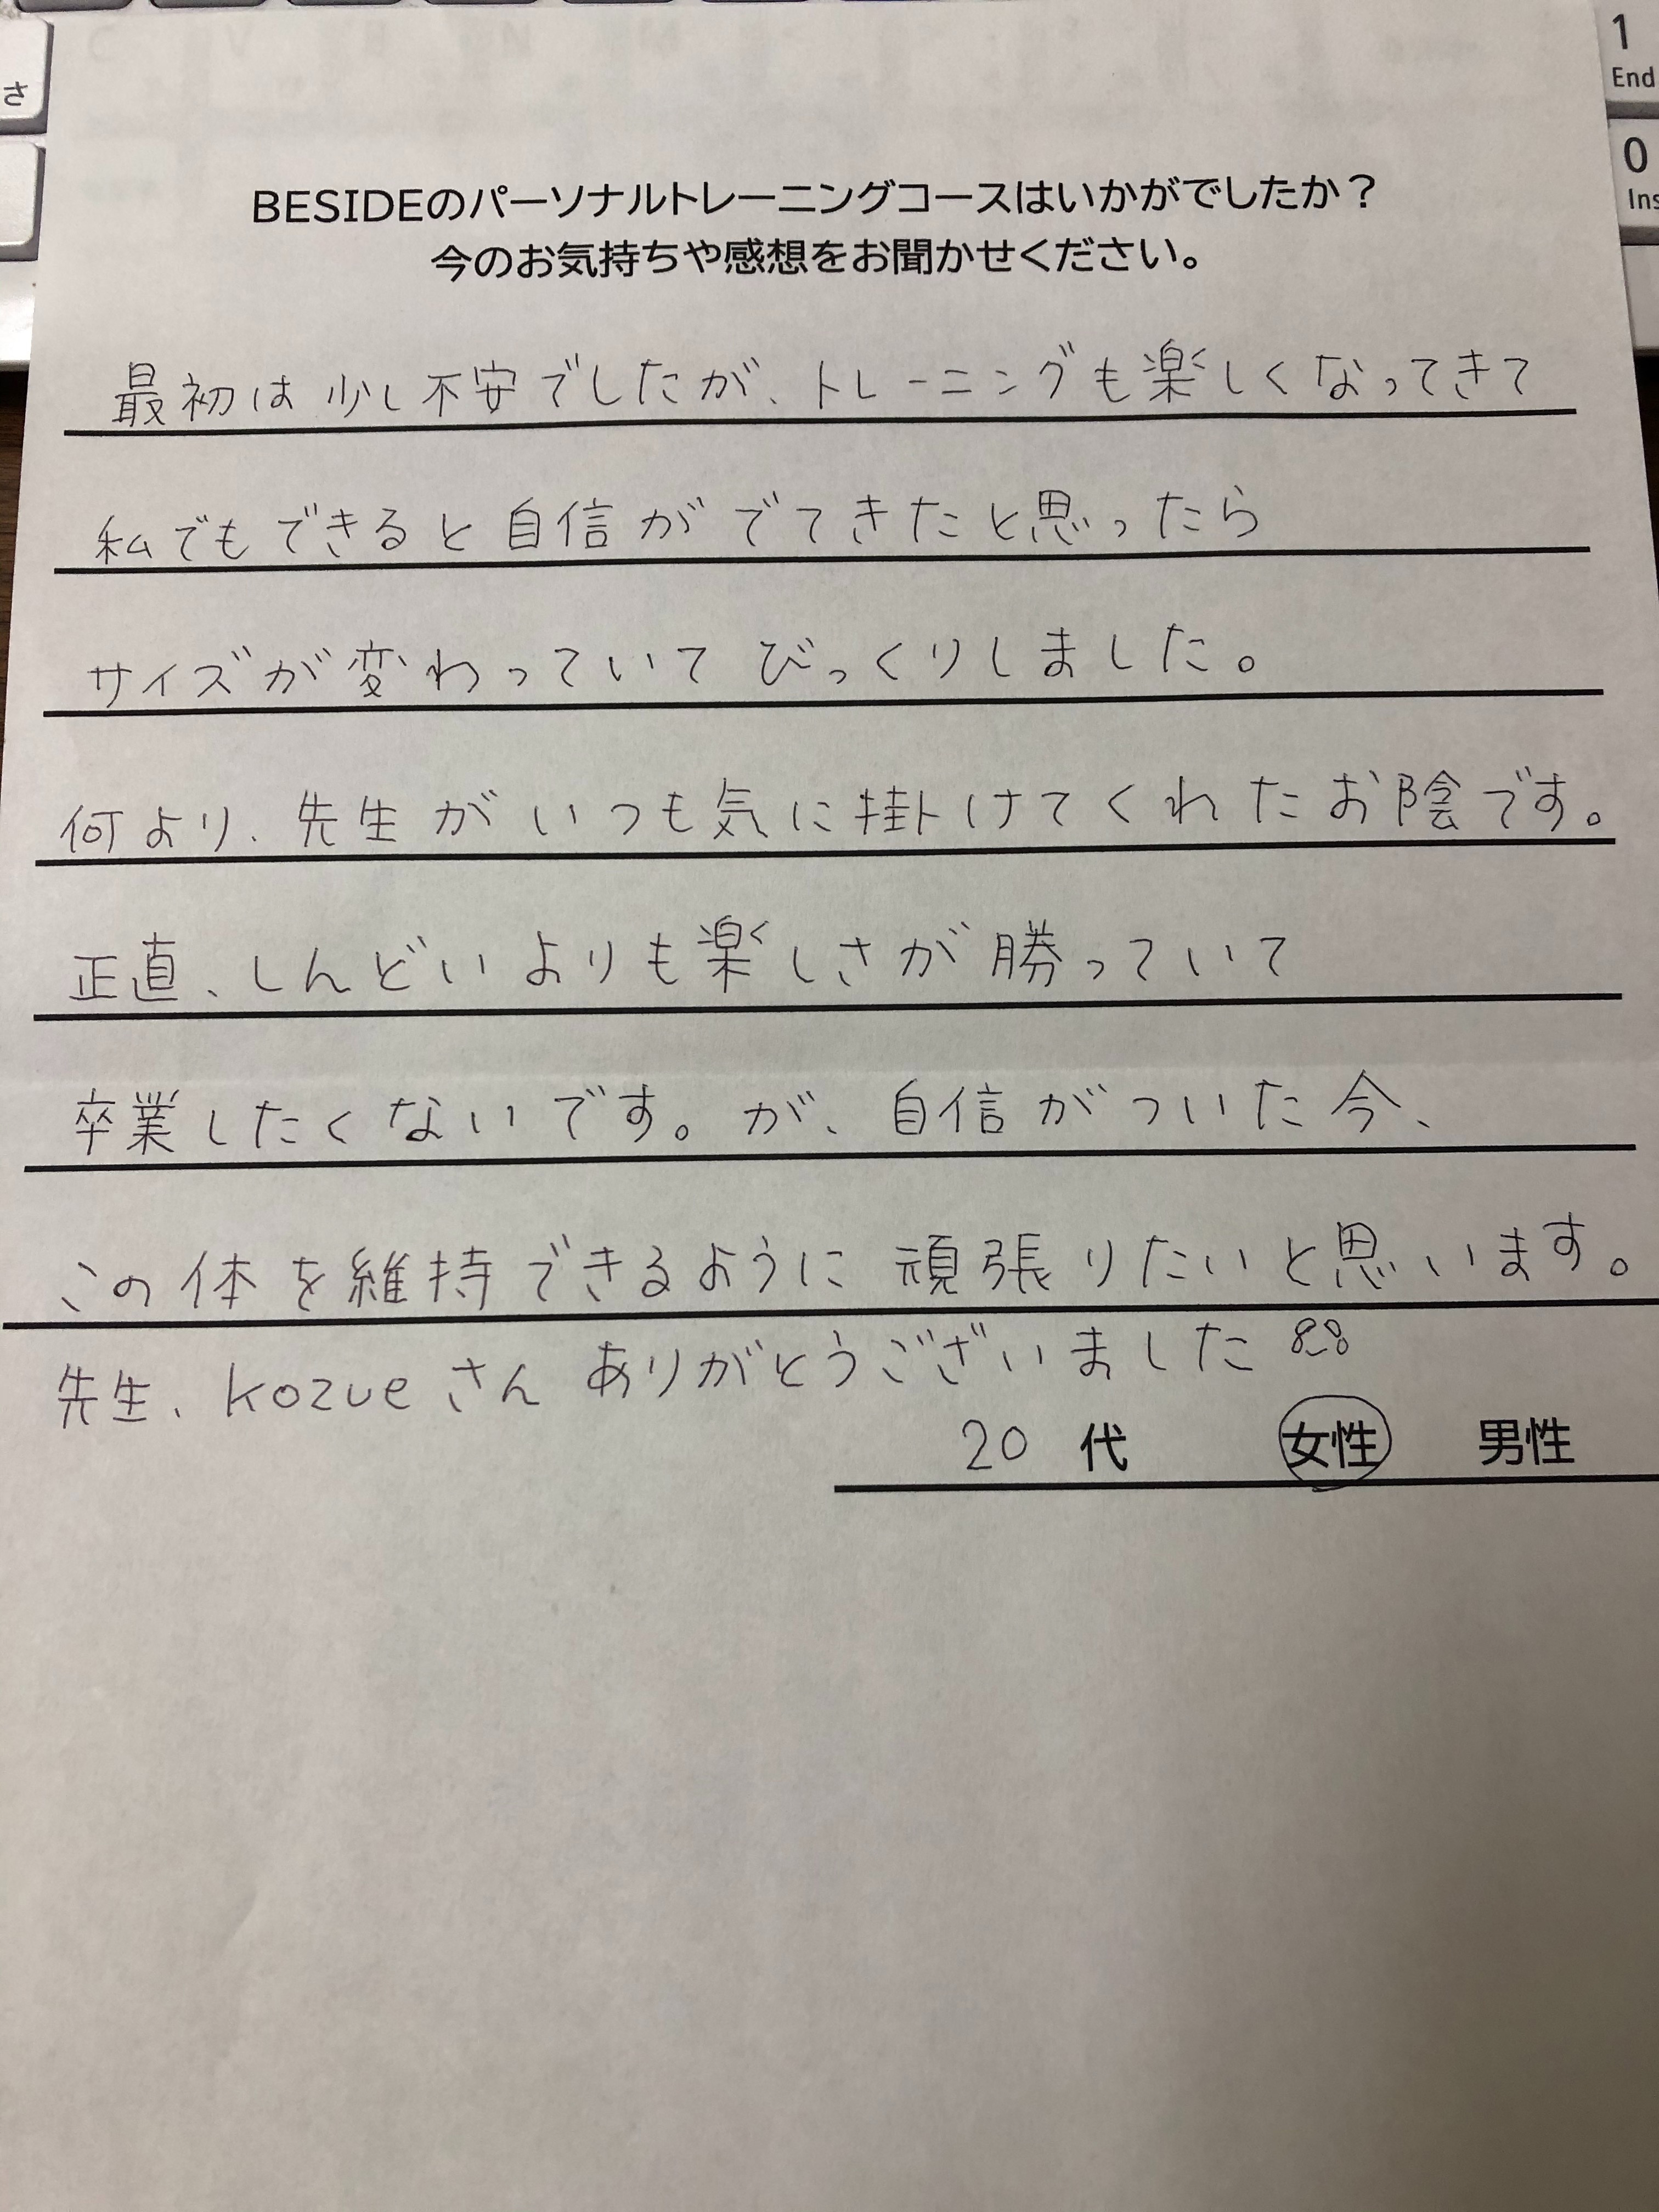 さ
1
End
0
Ins
BESIDEのパーソナルトレーニングコースはいかがでしたか？
今のお気持ちや感想をお聞かせください。
最初は少し不安でしたが、トレーニングも楽しくなってきて
私でもできると自信がでてきたと思ったら
サイズが変わっていてびっくりしました。
何より、先生がいつも気に掛けてくれたお陰です。
正直、しんどいよりも楽しさが勝っていて
卒業したくないです。が、自信がついた今、
この体を維持できるように頑張りたいと思います。
先生、kozueさんありがとうございました
20 代 女性 男性